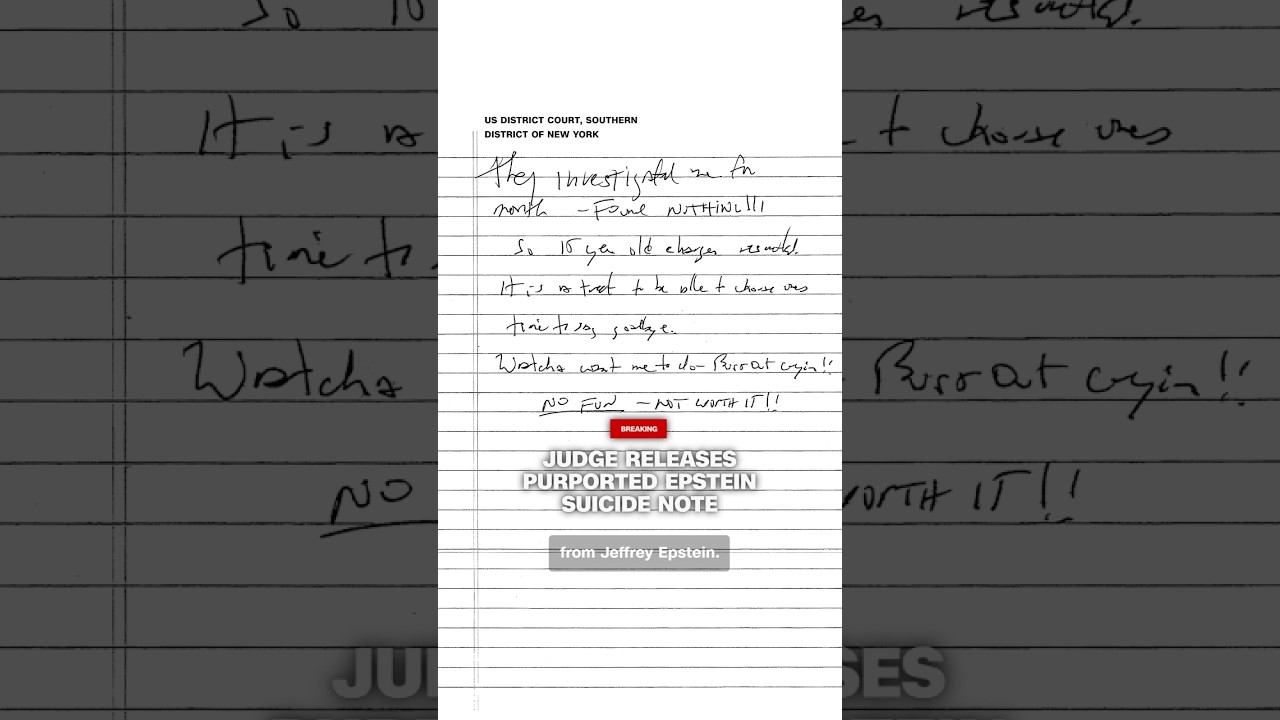 US DISTRICT COURT, SOUTHERN
DISTRICT OF NEW YORK
They investigated me for
month - Found NOTHING!!!
So 15 year old charges resulted.
It is a treat to be able to choose ones
time to say goodbye.
Watcha want me to do - Burst out cryin!!
NO FUN - NOT WORTH IT!!
BREAKING
JUDGE RELEASES
PURPORTED EPSTEIN
SUICIDE NOTE
from Jeffrey Epstein.